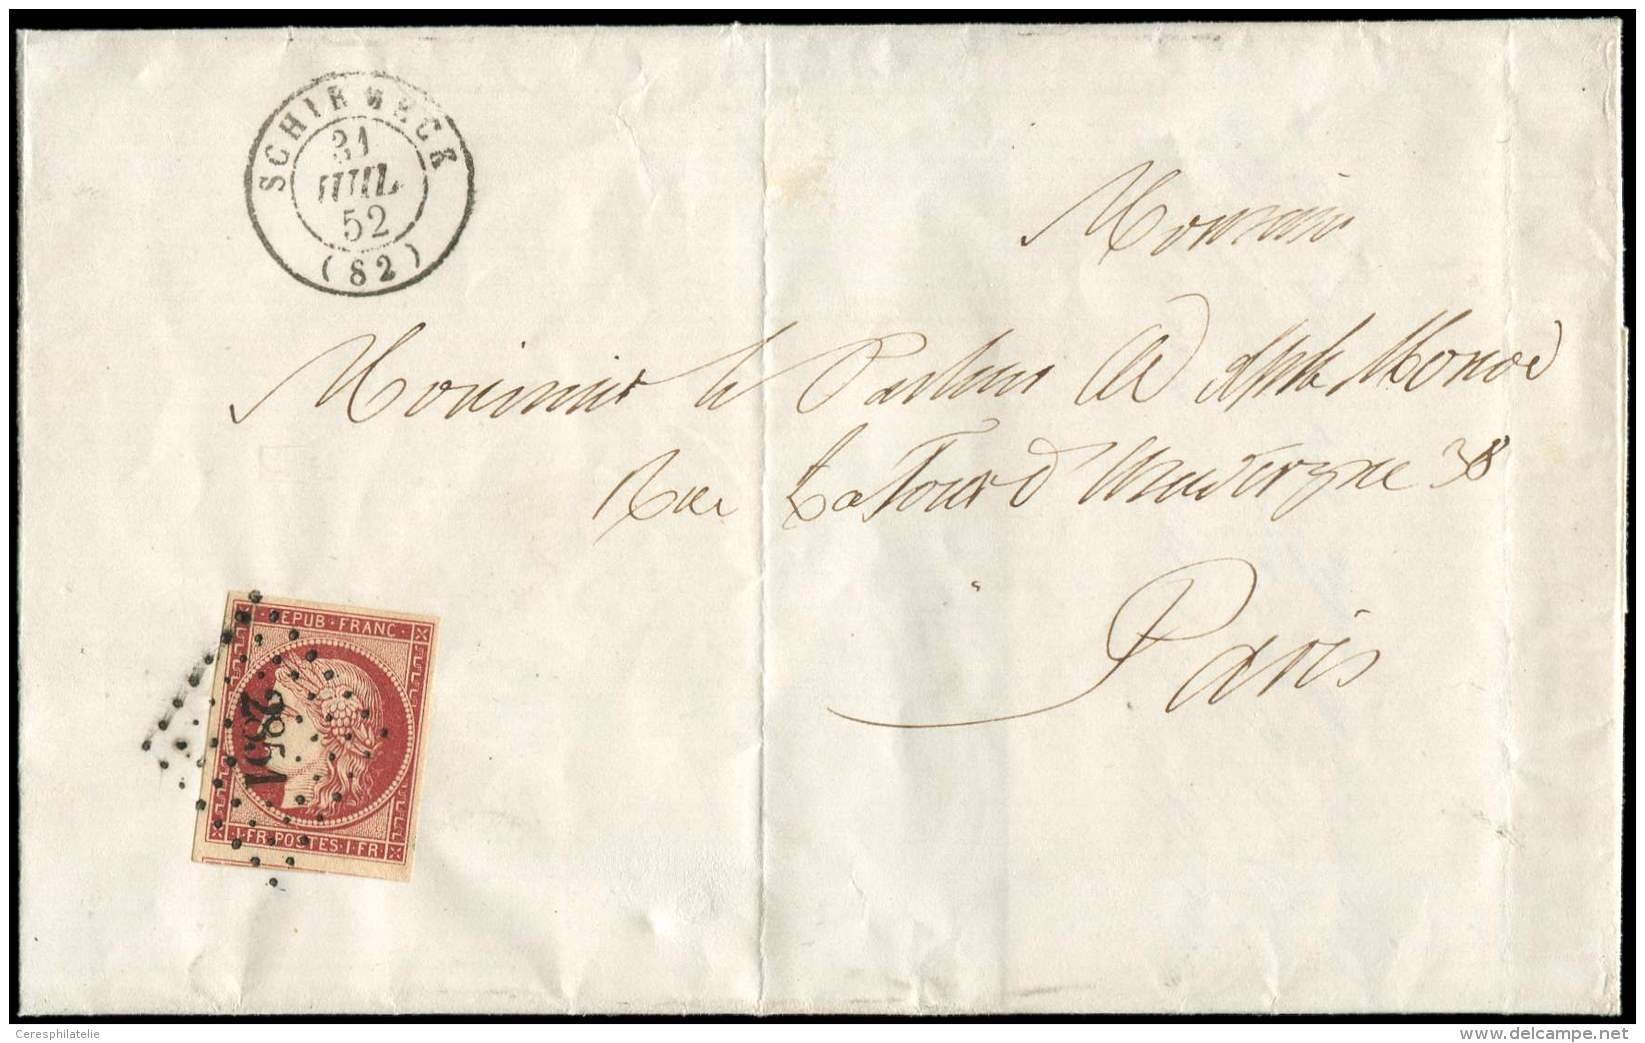 SCHIRMECK
31
JUIL
52
(82)
Monsieur
Monsieur le Pasteur Ad olphe Monod
Rue La Tour d'Auvergne 38
Paris
REPUB·FRANC·
2851
·1·FR·POSTES·1·FR·
Ceresphilatelie
www.delcampe.net